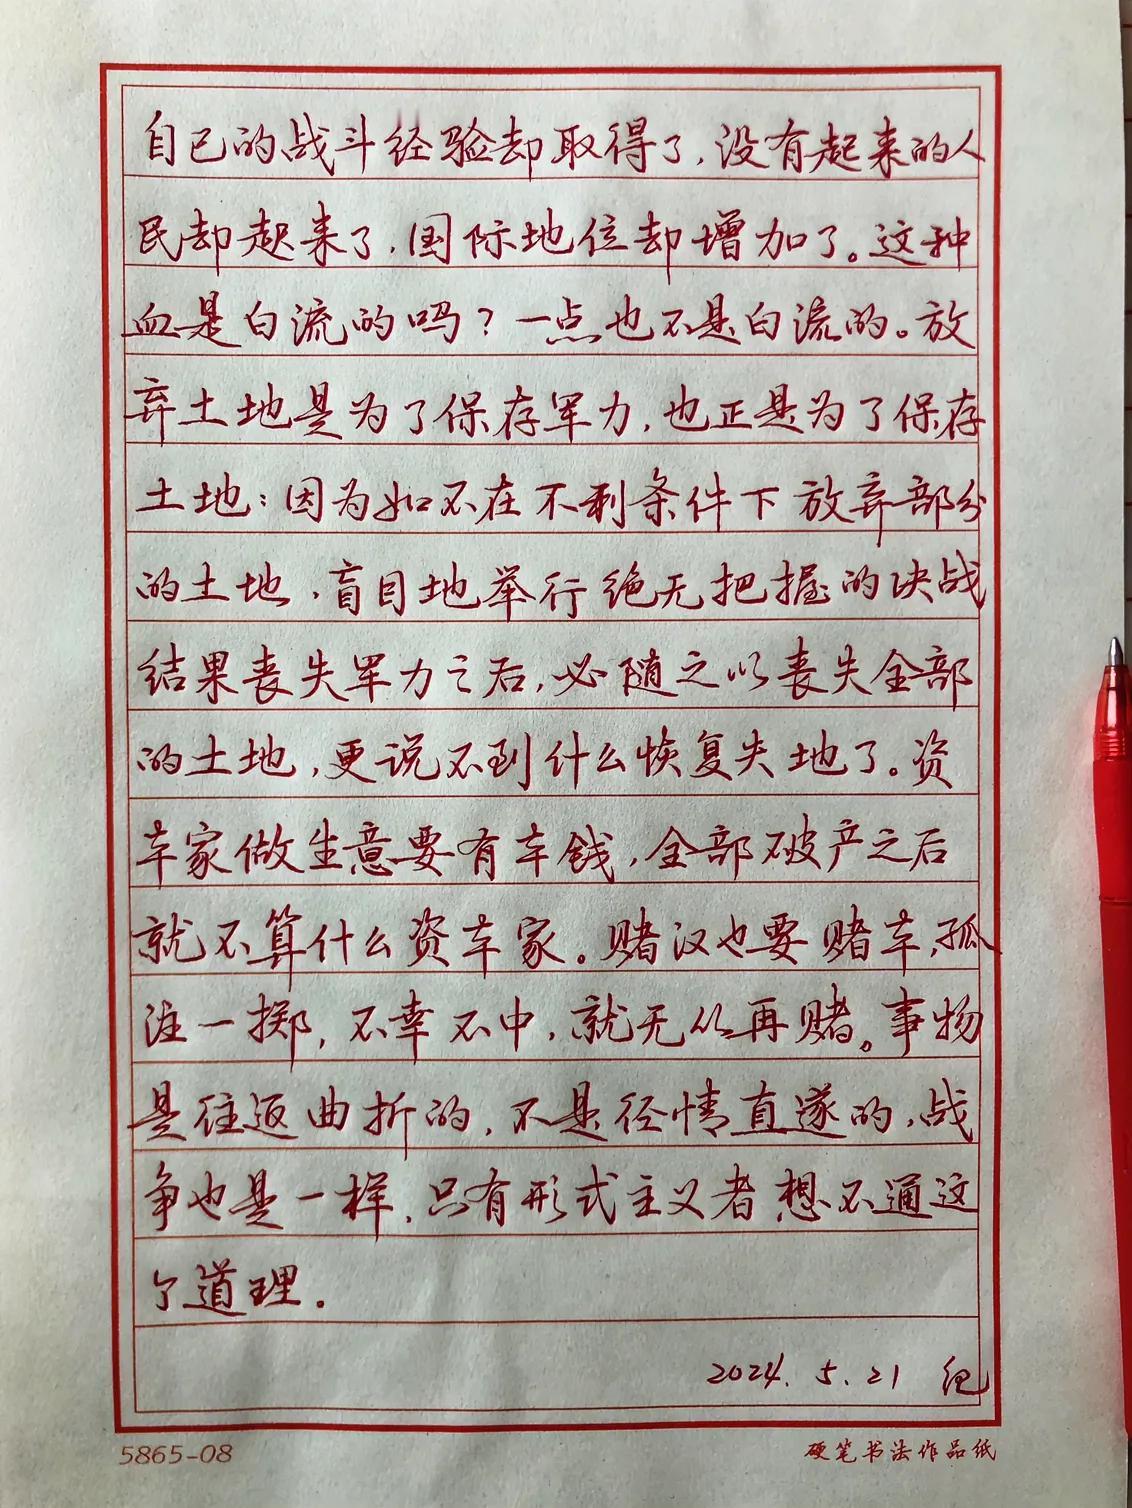 自己的战斗经验却取得了，没有起来的人
民却起来了，国际地位却增加了。这种
血是白流的吗？一点也不是白流的。放
弃土地是为了保存军力，也正是为了保存
土地：因为如不在不利条件下放弃部分
的土地，盲目地举行绝无把握的决战
结果丧失军力之后，必随之以丧失全部
的土地，更说不到什么恢复失地了。资
本家做生意要有本钱，全部破产之后
就不算什么资本家。赌汉也要赌本，孤
注一掷，不幸不中，就无从再赌。事物
是往返曲折的，不是径情直遂的，战
争也是一样，只有形式主义者想不通这
个道理.
2024.5.21 纪
5865-08
硬笔书法作品纸